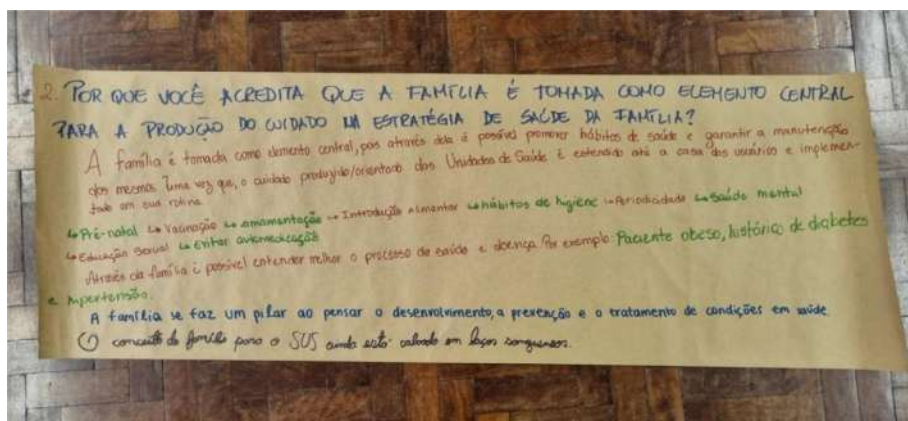 2. POR QUE VOCÊ ACREDITA QUE A FAMÍLIA É TOMADA COMO ELEMENTO CENTRAL
PARA A PRODUÇÃO DO CUIDADO NA ESTRATÉGIA DE SAÚDE DA FAMÍLIA?
A família é tomada como elemento central, pois através dela é possível promover hábitos de saúde e garantir a manutenção
dos mesmos. Uma vez que, o cuidado produzido/orientado das Unidades de Saúde é estendido até a casa dos usuários e implemen-
tado em sua rotina.
↳ Pré-natal ↳ Vacinação ↳ amamentação ↳ Introdução alimentar ↳ hábitos de higiene ↳ Periodicidade ↳ Saúde mental
↳ Educação sexual ↳ Evitar automedicação
Através da família é possível entender melhor o processo de saúde e doença. Por exemplo: Paciente obeso, histórico de diabetes
e hipertensão.
A família se faz um pilar ao pensar o desenvolvimento, a prevenção e o tratamento de condições em saúde.
O conceito de família para o SUS ainda está calcado em laços sanguíneos.